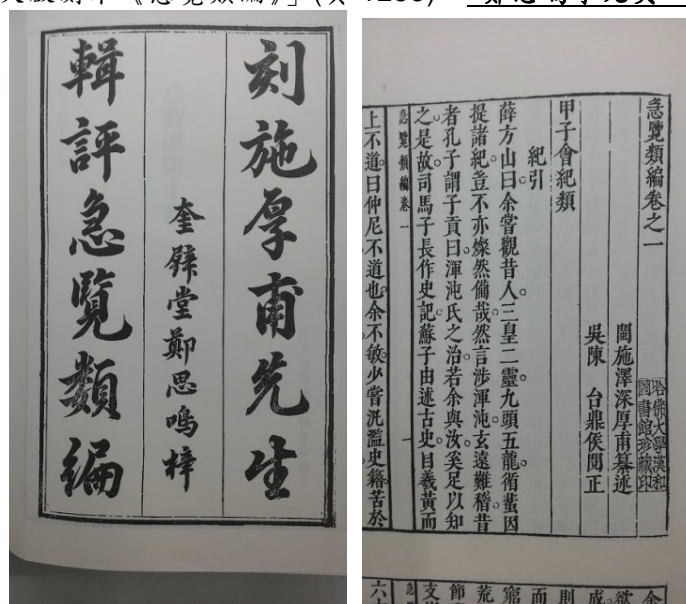 《急覽類編》」
刻施厚甫先生
奎璧堂鄭思鳴梓
輯評急覽類編
急覽類編卷之一
哈佛大學漢和
圖書館珍藏印
閩施澤深厚甫纂述
吳陳 台鼎侯閱正
甲子會紀類
紀引
薛方山曰余嘗觀昔人三皇二靈九頭五龍循蜚因
提諸紀豈不亦燦然備哉然言涉渾沌玄遠難稽昔
者孔子謂子貢曰渾沌氏之治若余與汝奚足以知
之是故司馬子長作史記蘇子由述古史目羲黃而
急覽類編卷一 一
上不道曰仲尼不道也余不敏少嘗汎濫史籍苦於